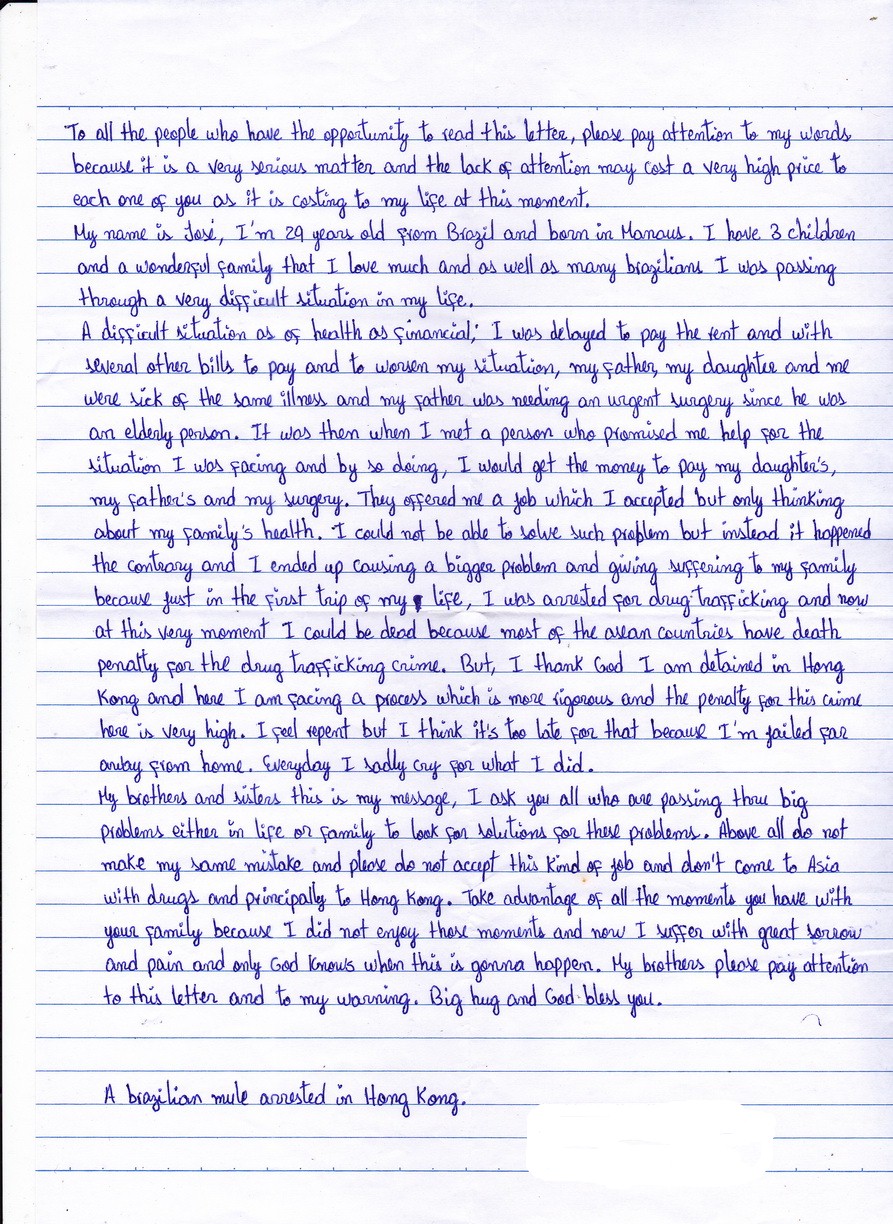 To all the people who have the opportunity to read this letter, please pay attention to my words
because it is a very serious matter and the lack of attention may cost a very high price to
each one of you as it is costing to my life at this moment.
My name is José, I'm 29 years old from Brazil and born in Manaus. I have 3 children
and a wonderful family that I love much and as well as many brazilians I was passing
through a very difficult situation in my life.
A difficult situation as of health as financial; I was delayed to pay the rent and with
several other bills to pay and to worsen my situation, my father, my daughter and me
were sick of the same illness and my father was needing an urgent surgery since he was
an elderly person. It was then when I met a person who promised me help for the
situation I was facing and by so doing, I would get the money to pay my daughter's,
my father's and my surgery. They offered me a job which I accepted but only thinking
about my family's health. I could not be able to solve such problem but instead it happened
the contrary and I ended up causing a bigger problem and giving suffering to my family
because just in the first trip of my life, I was arrested for drug trafficking and now
at this very moment I could be dead because most of the asean countries have death
penalty for the drug trafficking crime. But, I thank God I am detained in Hong
Kong and here I am facing a process which is more rigorous and the penalty for this crime
here is very high. I feel repent but I think it's too late for that because I'm jailed far
away from home. Everyday I sadly cry for what I did.
My brothers and sisters this is my message, I ask you all who are passing thru big
problems either in life or family to look for solutions for these problems. Above all do not
make my same mistake and please do not accept this kind of job and don't come to Asia
with drugs and principally to Hong Kong. Take advantage of all the moments you have with
your family because I did not enjoy those moments and now I suffer with great sorrow
and pain and only God knows when this is gonna happen. My brothers please pay attention
to this letter and to my warning. Big hug and God bless you.
A brazilian mule arrested in Hong Kong.